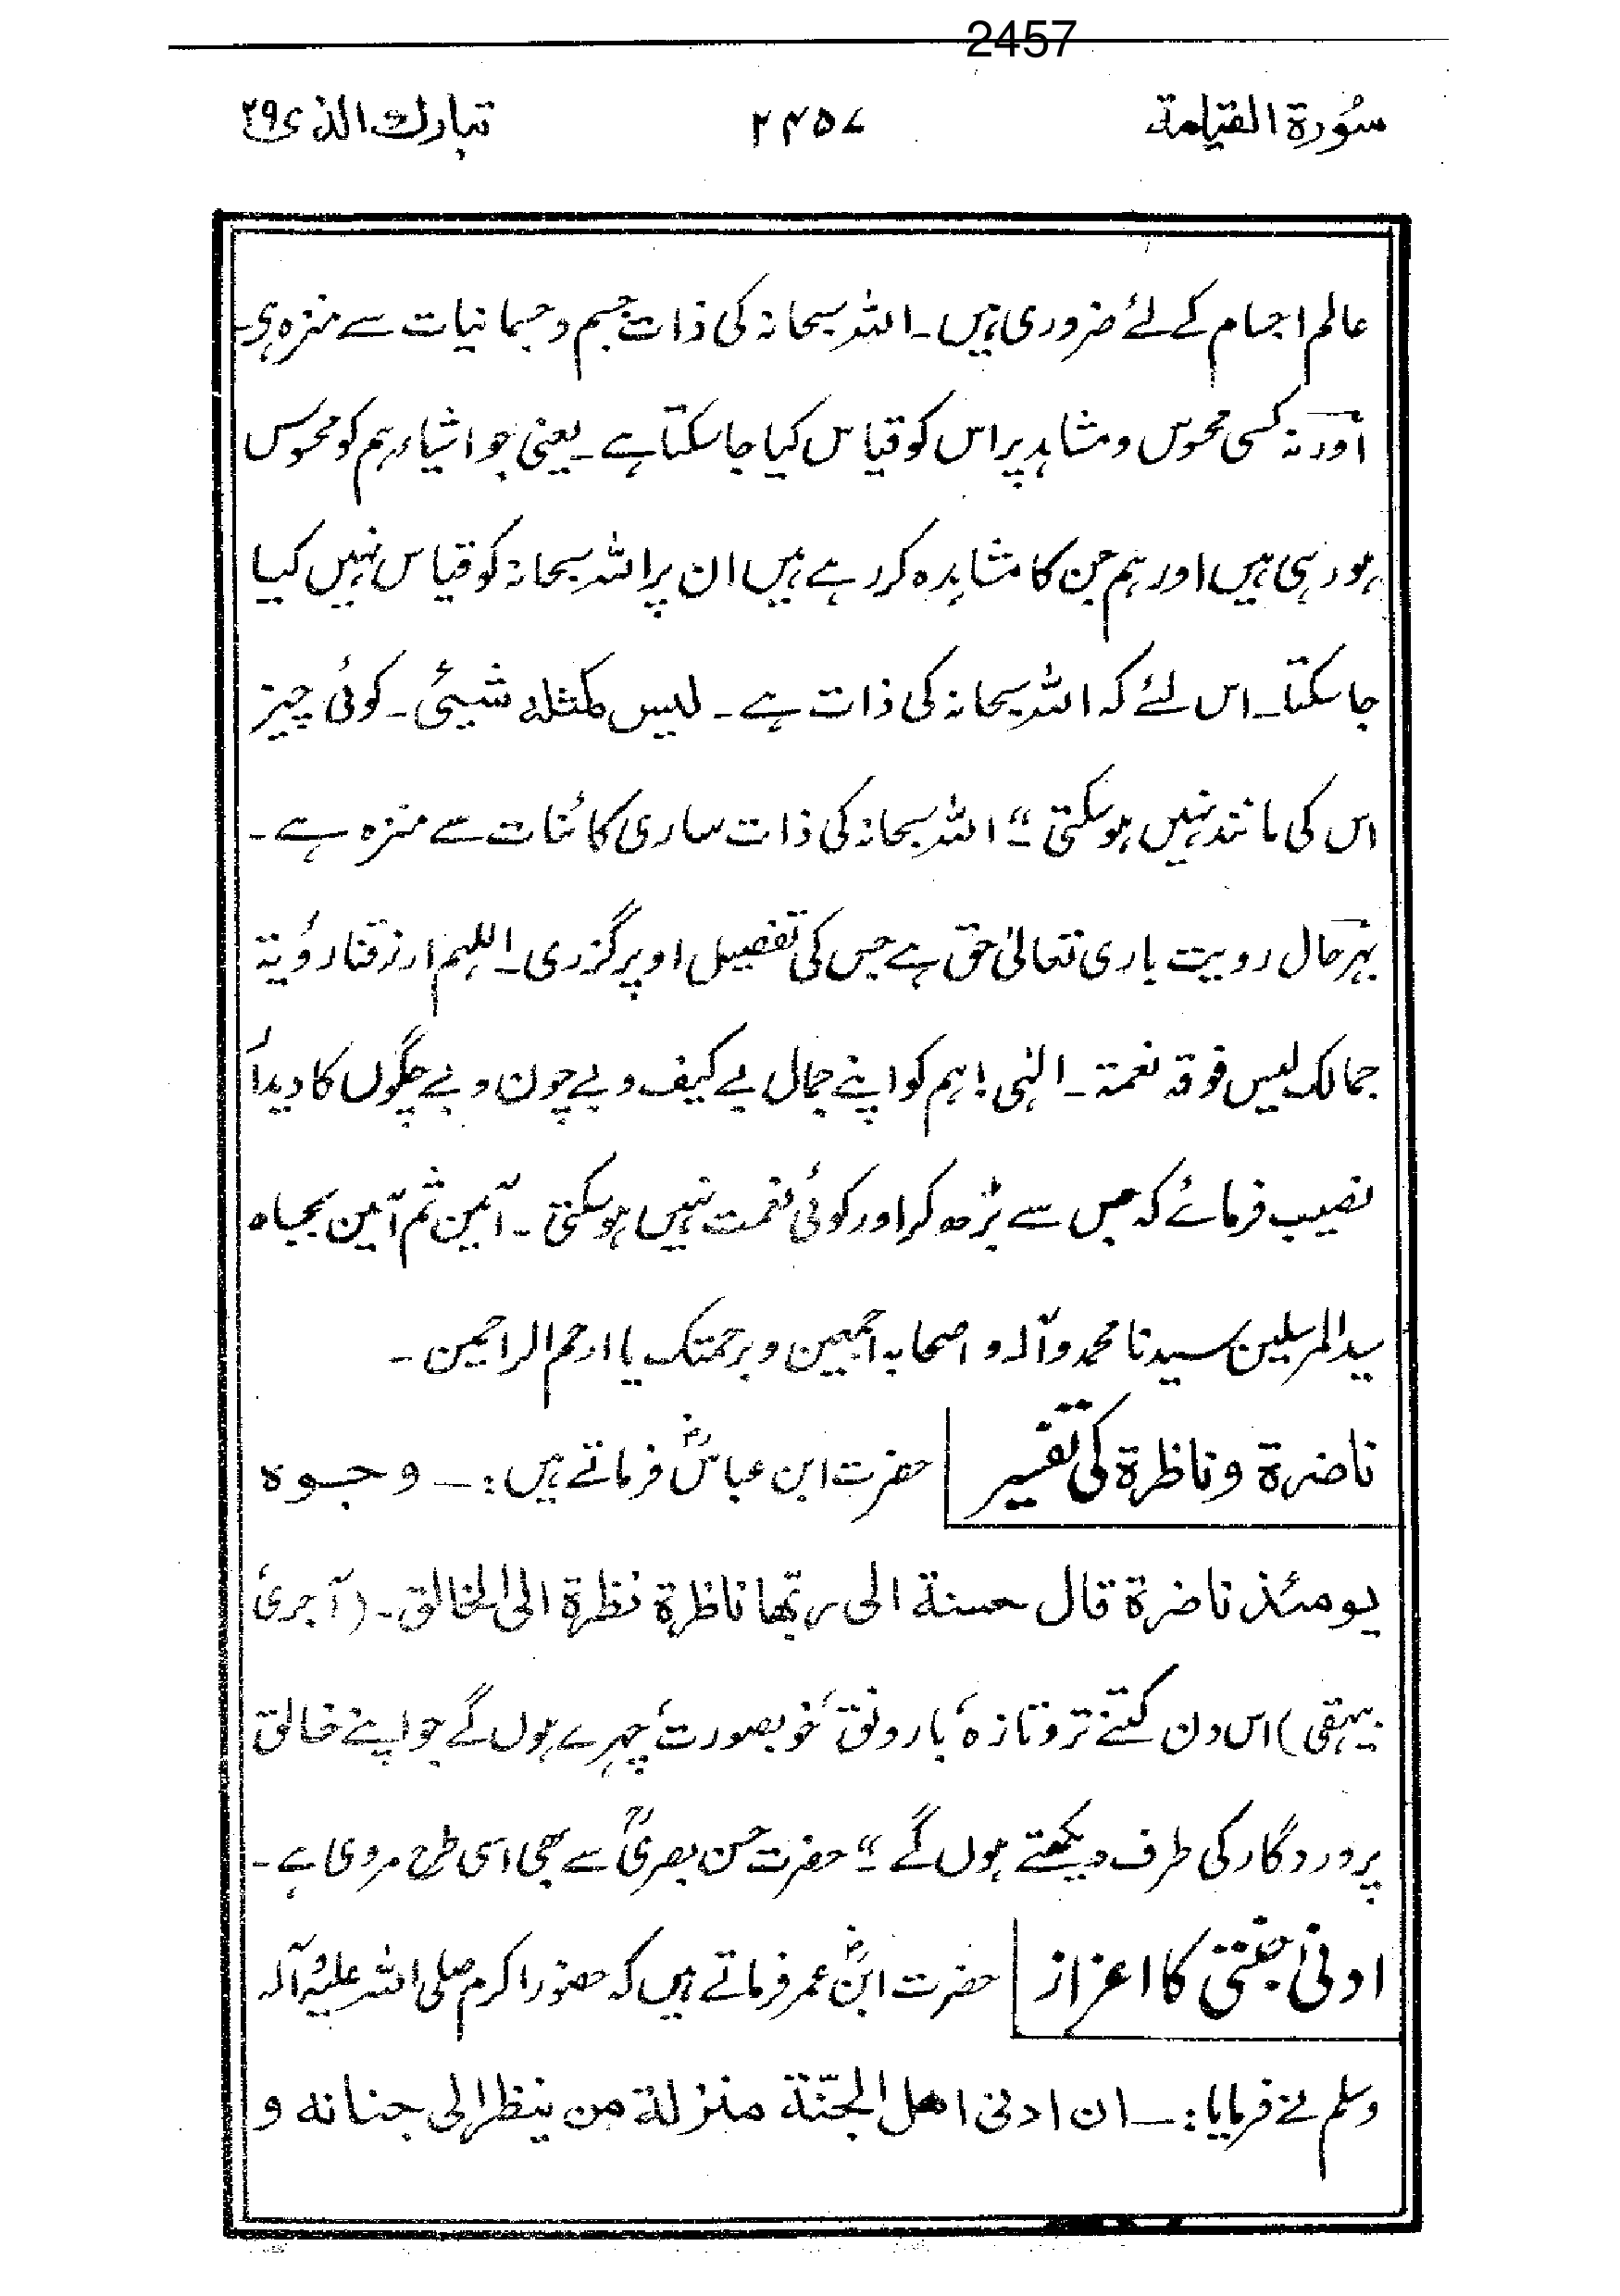 2457
سُورة القيامة ۲۴۵۷ تبارك الذی ۲۹
عالم اجسام کے لئے ضروری ہیں۔ اللہ سبحانہ کی ذات جسم و جسمانیات سے منزہ ہی۔
اور نہ کسی محسوس و مشاہد پر اس کو قیاس کیا جا سکتا ہے۔ یعنی جو اشیاء ہم کو محسوس
ہو رہی ہیں اور ہم جن کا مشاہدہ کر رہے ہیں ان پر اللہ سبحانہ کو قیاس نہیں کیا
جا سکتا۔ اس لئے کہ اللہ سبحانہ کی ذات ہے۔ لیس کمثلہ شیئی۔ کوئی چیز
اس کی مانند نہیں ہو سکتی“ اللہ سبحانہ کی ذات ساری کائنات سے منزہ ہے۔
بہرحال رویت باری تعالیٰ حق ہے جس کی تفصیل اوپر گزری۔ اللہم ارزقنا رؤیۃ
جمالک لیس فوقہ نعمۃ۔ الہٰی! ہم کو اپنے جمال بے کیف و بے چون و بے چگوں کا دیدار
نصیب فرمائے کہ جس سے بڑھ کر اور کوئی نعمت نہیں ہو سکتی۔ آمین ثم آمین بجاہ
سید المرسلین سیدنا محمد وآلہ و اصحابہ اجمعین و برحمتک یا ارحم الراحمین۔
ناضرة و ناظرة کی تفسیر حضرت ابن عباسؓ فرماتے ہیں:۔ وجوہ
یومئذ ناضرة قال حسنة الی ربھا ناظرة نظرة الی الخالق۔ (آجری
بیہقی) اس دن کتنے تر و تازہ، بارونق، خوبصورت چہرے ہوں گے جو اپنے خالق
پروردگار کی طرف دیکھتے ہوں گے“ حضرت حسن بصریؒ سے بھی اسی طرح مروی ہے۔
ادنیٰ جنتی کا اعزاز حضرت ابنؓ عمر فرماتے ہیں کہ حضور اکرم صلی اللہ علیہ وآلہ
وسلم نے فرمایا:۔ ان ادنی اھل الجنّة منزلة من ینظر الی جنانه و